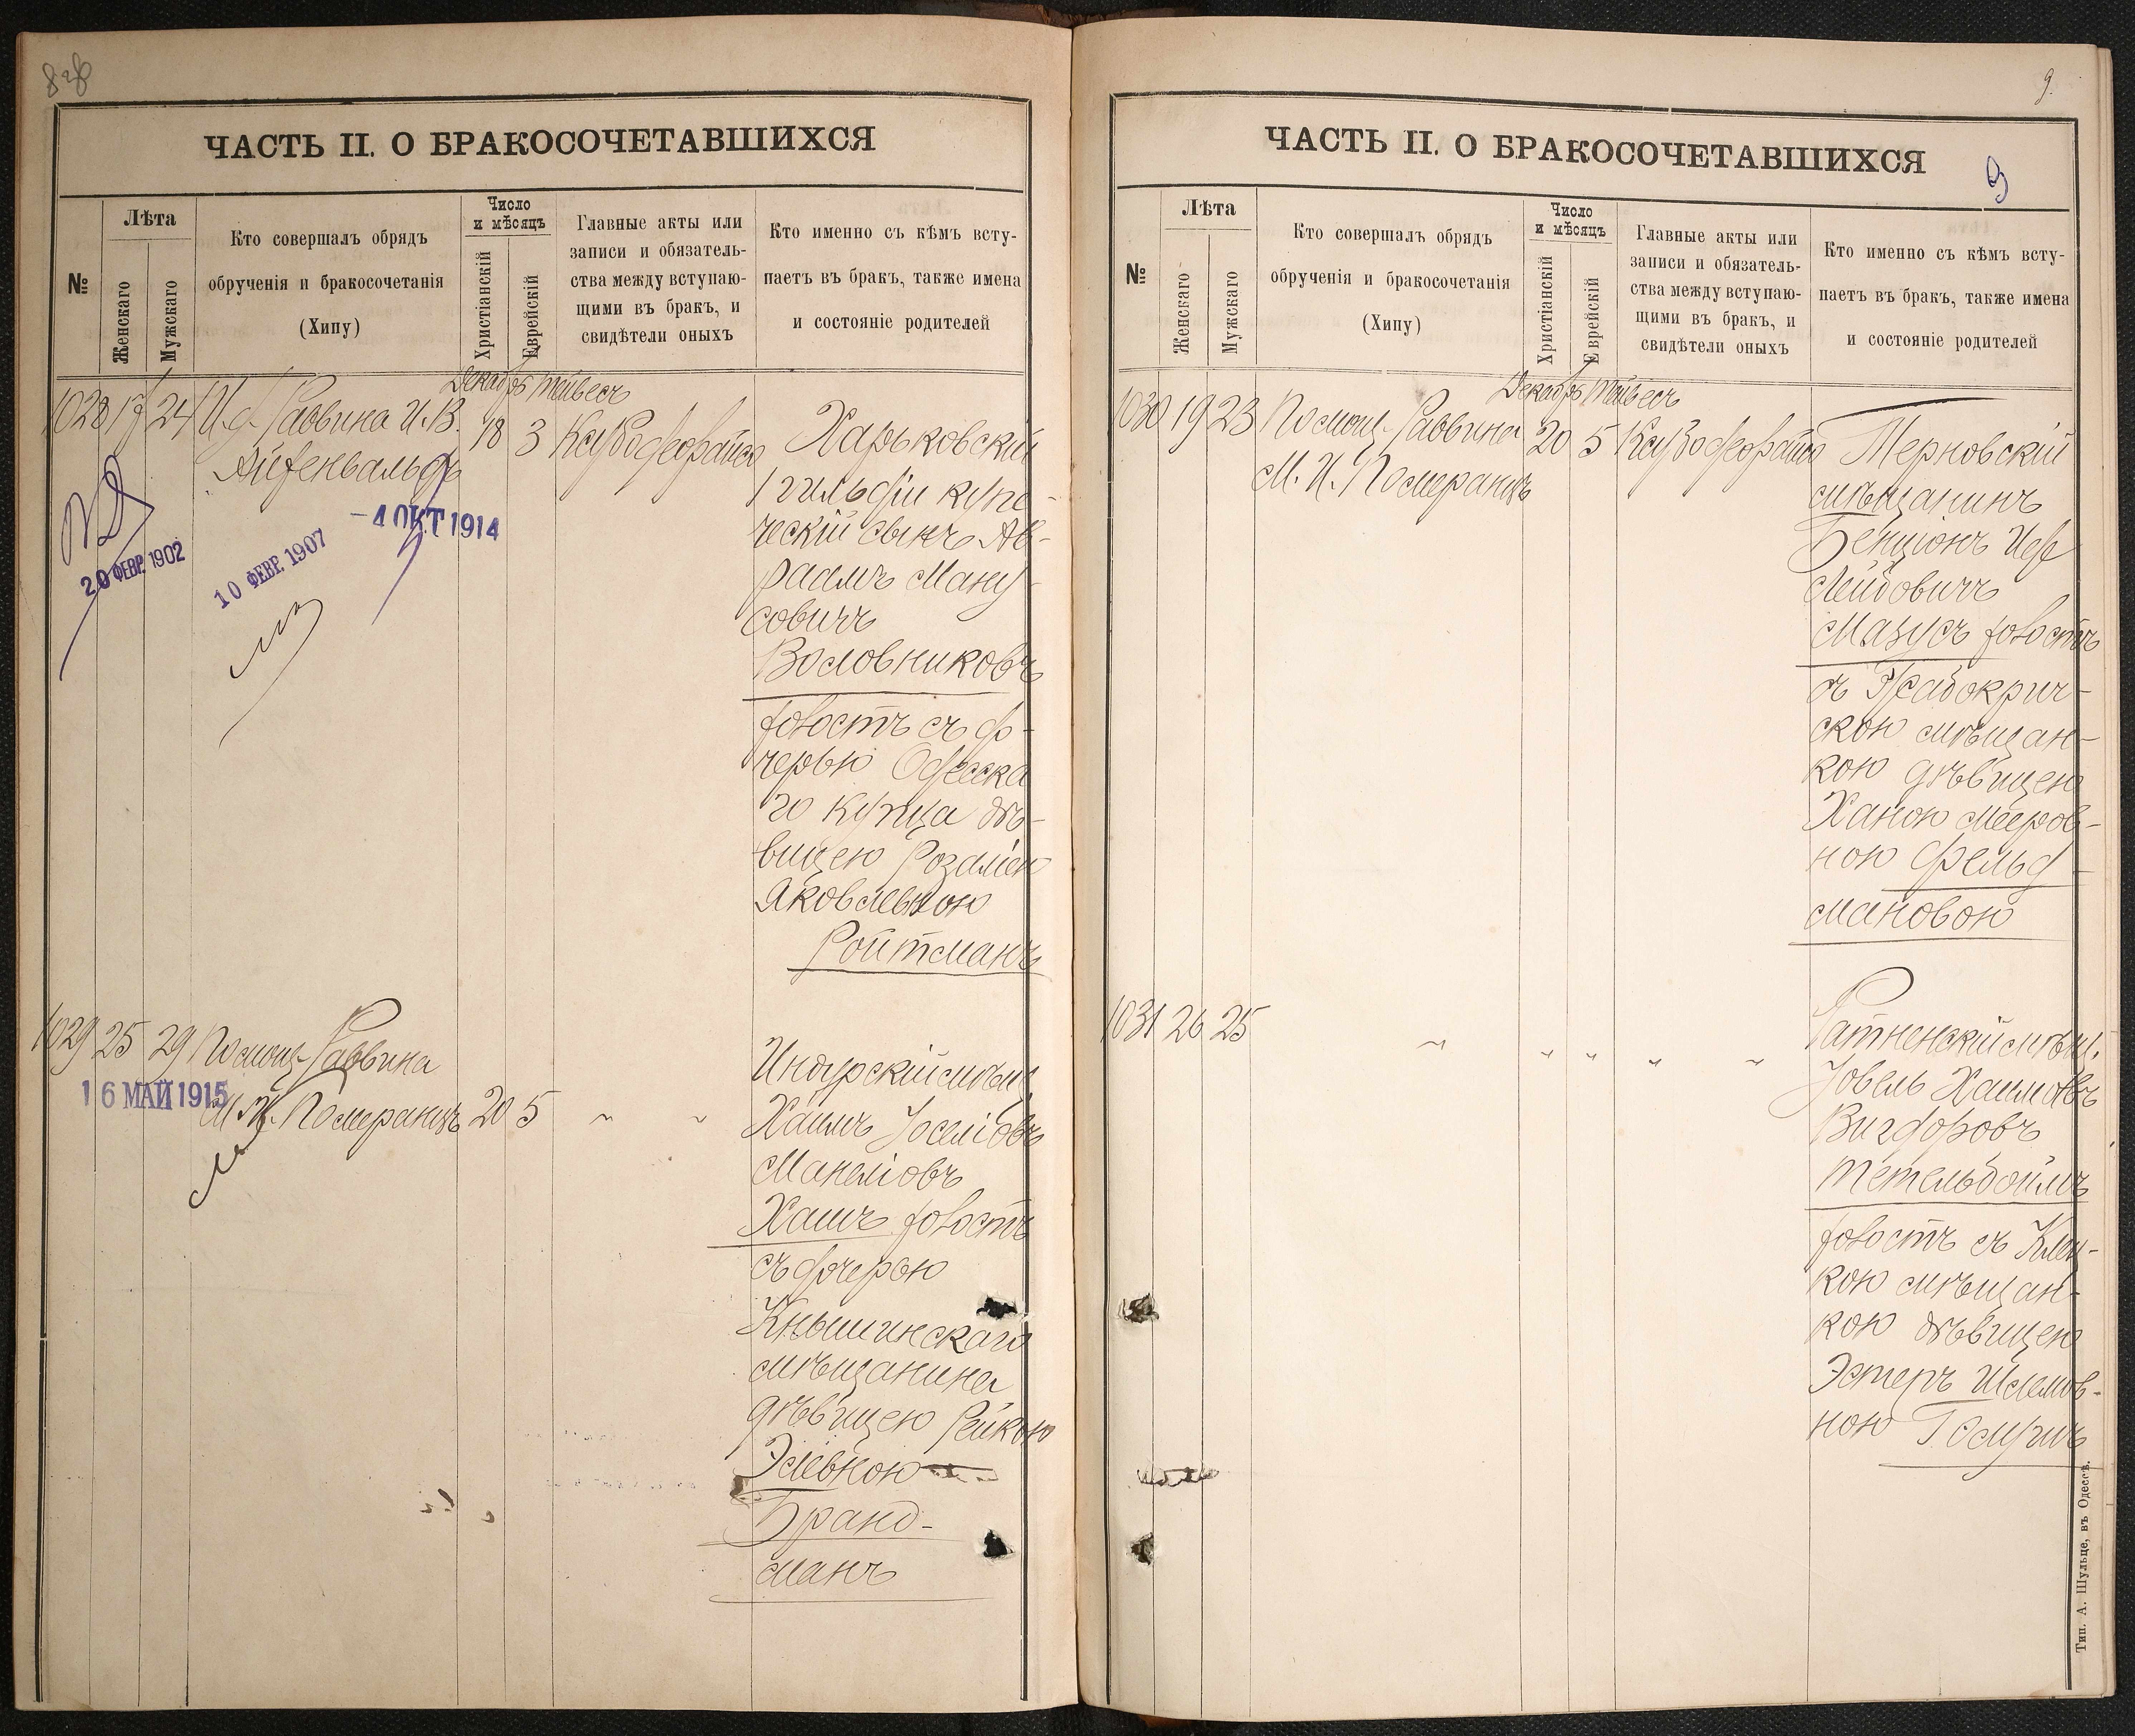 ЧАСТЬ II. О БРАКОСОЧЕТАВШИХСЯ
№
Лѣта
Женскаго
Мужскаго
Кто совершалъ обрядъ
обрученія и бракосочетанія
(Хипу)
Число
и мѣсяцъ
Христіанскій
Еврейскій
Главные акты или
записи и обязатель-
ства между вступаю-
щими въ бракъ, и
свидѣтели оныхъ
Кто именно съ кѣмъ всту-
паетъ въ бракъ, также имена
и состояніе родителей
Декабрь Тейвесъ
1028 17 24 И.д. Раввина И.В.
Айзенвальдъ
18 3
Харьковскій
1 гильдіи купе-
ческій сынъ Ав-
раамъ Ману-
совичъ
Воловниковъ
холостъ съ до-
черью Одесска
го купца дѣ-
вицею Розаліею
Яковлевною
Ройтманъ
20 ФЕВР. 1902
10 ФЕВР. 1907
-4 ОКТ 1914
1029 25 29 Помощ. Раввина
М.И. Померанцъ 20 5 " "
16 МАЙ 1915
Индурскій мѣщ.
Хаимъ Іоселіовъ
Манеліовъ
Хашъ холостъ
съ дочерью
Кнышинскаго
мѣщанина
дѣвицею Рейкою
Эліевною
Бранд-
манъ
9.
ЧАСТЬ II. О БРАКОСОЧЕТАВШИХСЯ
9
№
Лѣта
Женскаго
Мужскаго
Кто совершалъ обрядъ
обрученія и бракосочетанія
(Хипу)
Число
и мѣсяцъ
Христіанскій
Еврейскій
Главные акты или
записи и обязатель-
ства между вступаю-
щими въ бракъ, и
свидѣтели оныхъ
Кто именно съ кѣмъ всту-
паетъ въ бракъ, также имена
и состояніе родителей
Декабрь Тейвесъ
1030 19 23 Помощ. Раввина
М.И. Померанцъ
20 5
Терновскій
мѣщанинъ
Бенціонъ Іосе
Лейбовичъ
Мазусъ холостъ
съ Жабокрич-
скою мѣщан-
кою дѣвицею
Ханою Мееров-
ною Фельд-
мановою
1031 26 25 " " " " "
Ратненскій мѣщ.
Іовель Хаимовъ
Вигдоровъ
Тетельбоймъ
холостъ съ Клец-
кою мѣщан-
кою дѣвицею
Эстеръ Шлемов-
ною
Тип. А. Шульце, въ Одессѣ.